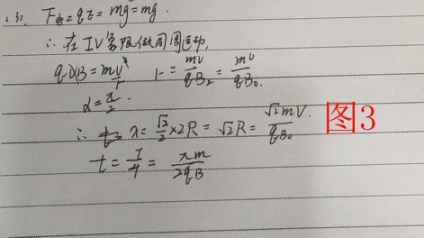 (3). F电=qE=mg=mg.
∴在IV象限做匀周运动,
qvB=mv²/r r=mv/qB₂=mv/qB₀.
α=π/2.
∴ x=√2/2×2R=√2R=√2mV/qB₀ 图3
t=T/4=πm/2qB